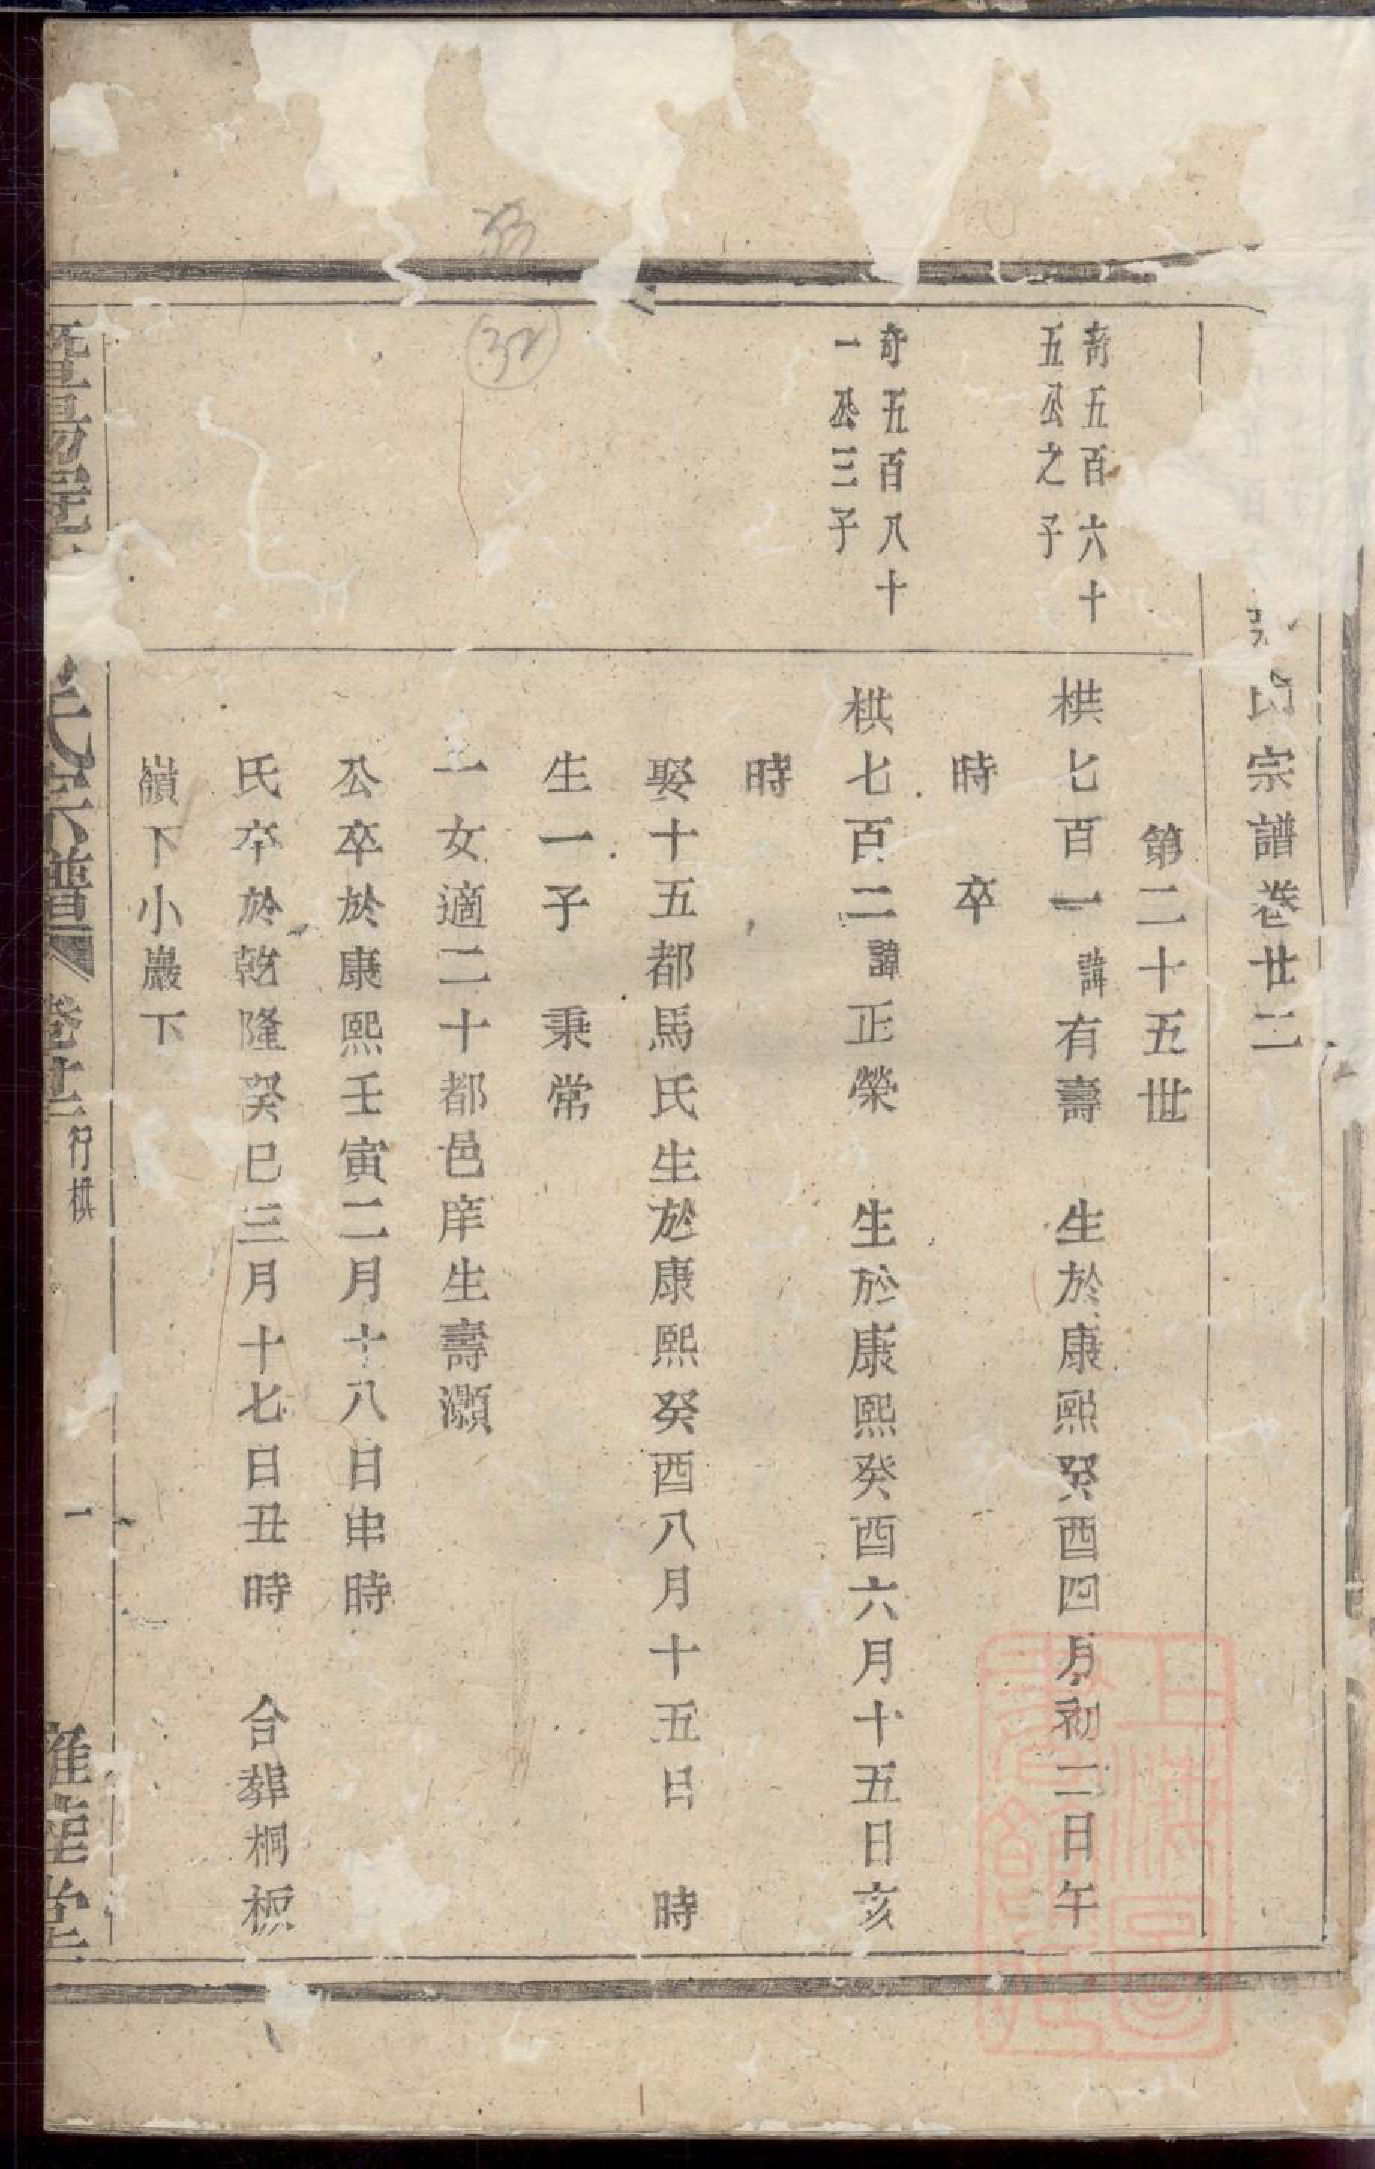 氏宗譜卷廿二
第二十五世
奇五百六十
五公之子
栱七百一諱有壽 生於康熙癸酉四月初二日午
時 卒
奇五百八十
一公三子
栱七百二諱正榮 生於康熙癸酉六月十五日亥
時
娶十五都馬氏生於康熙癸酉八月十五日 時
生一子 秉常
一女適二十都邑庠生壽灝
公卒於康熙壬寅二月十八日申時
氏卒於乾隆癸巳三月十七日丑時 合葬桐栀
嶺下小巖下
暨陽 氏宗譜 卷廿二 行栱 一 堂
32
上海圖書館藏